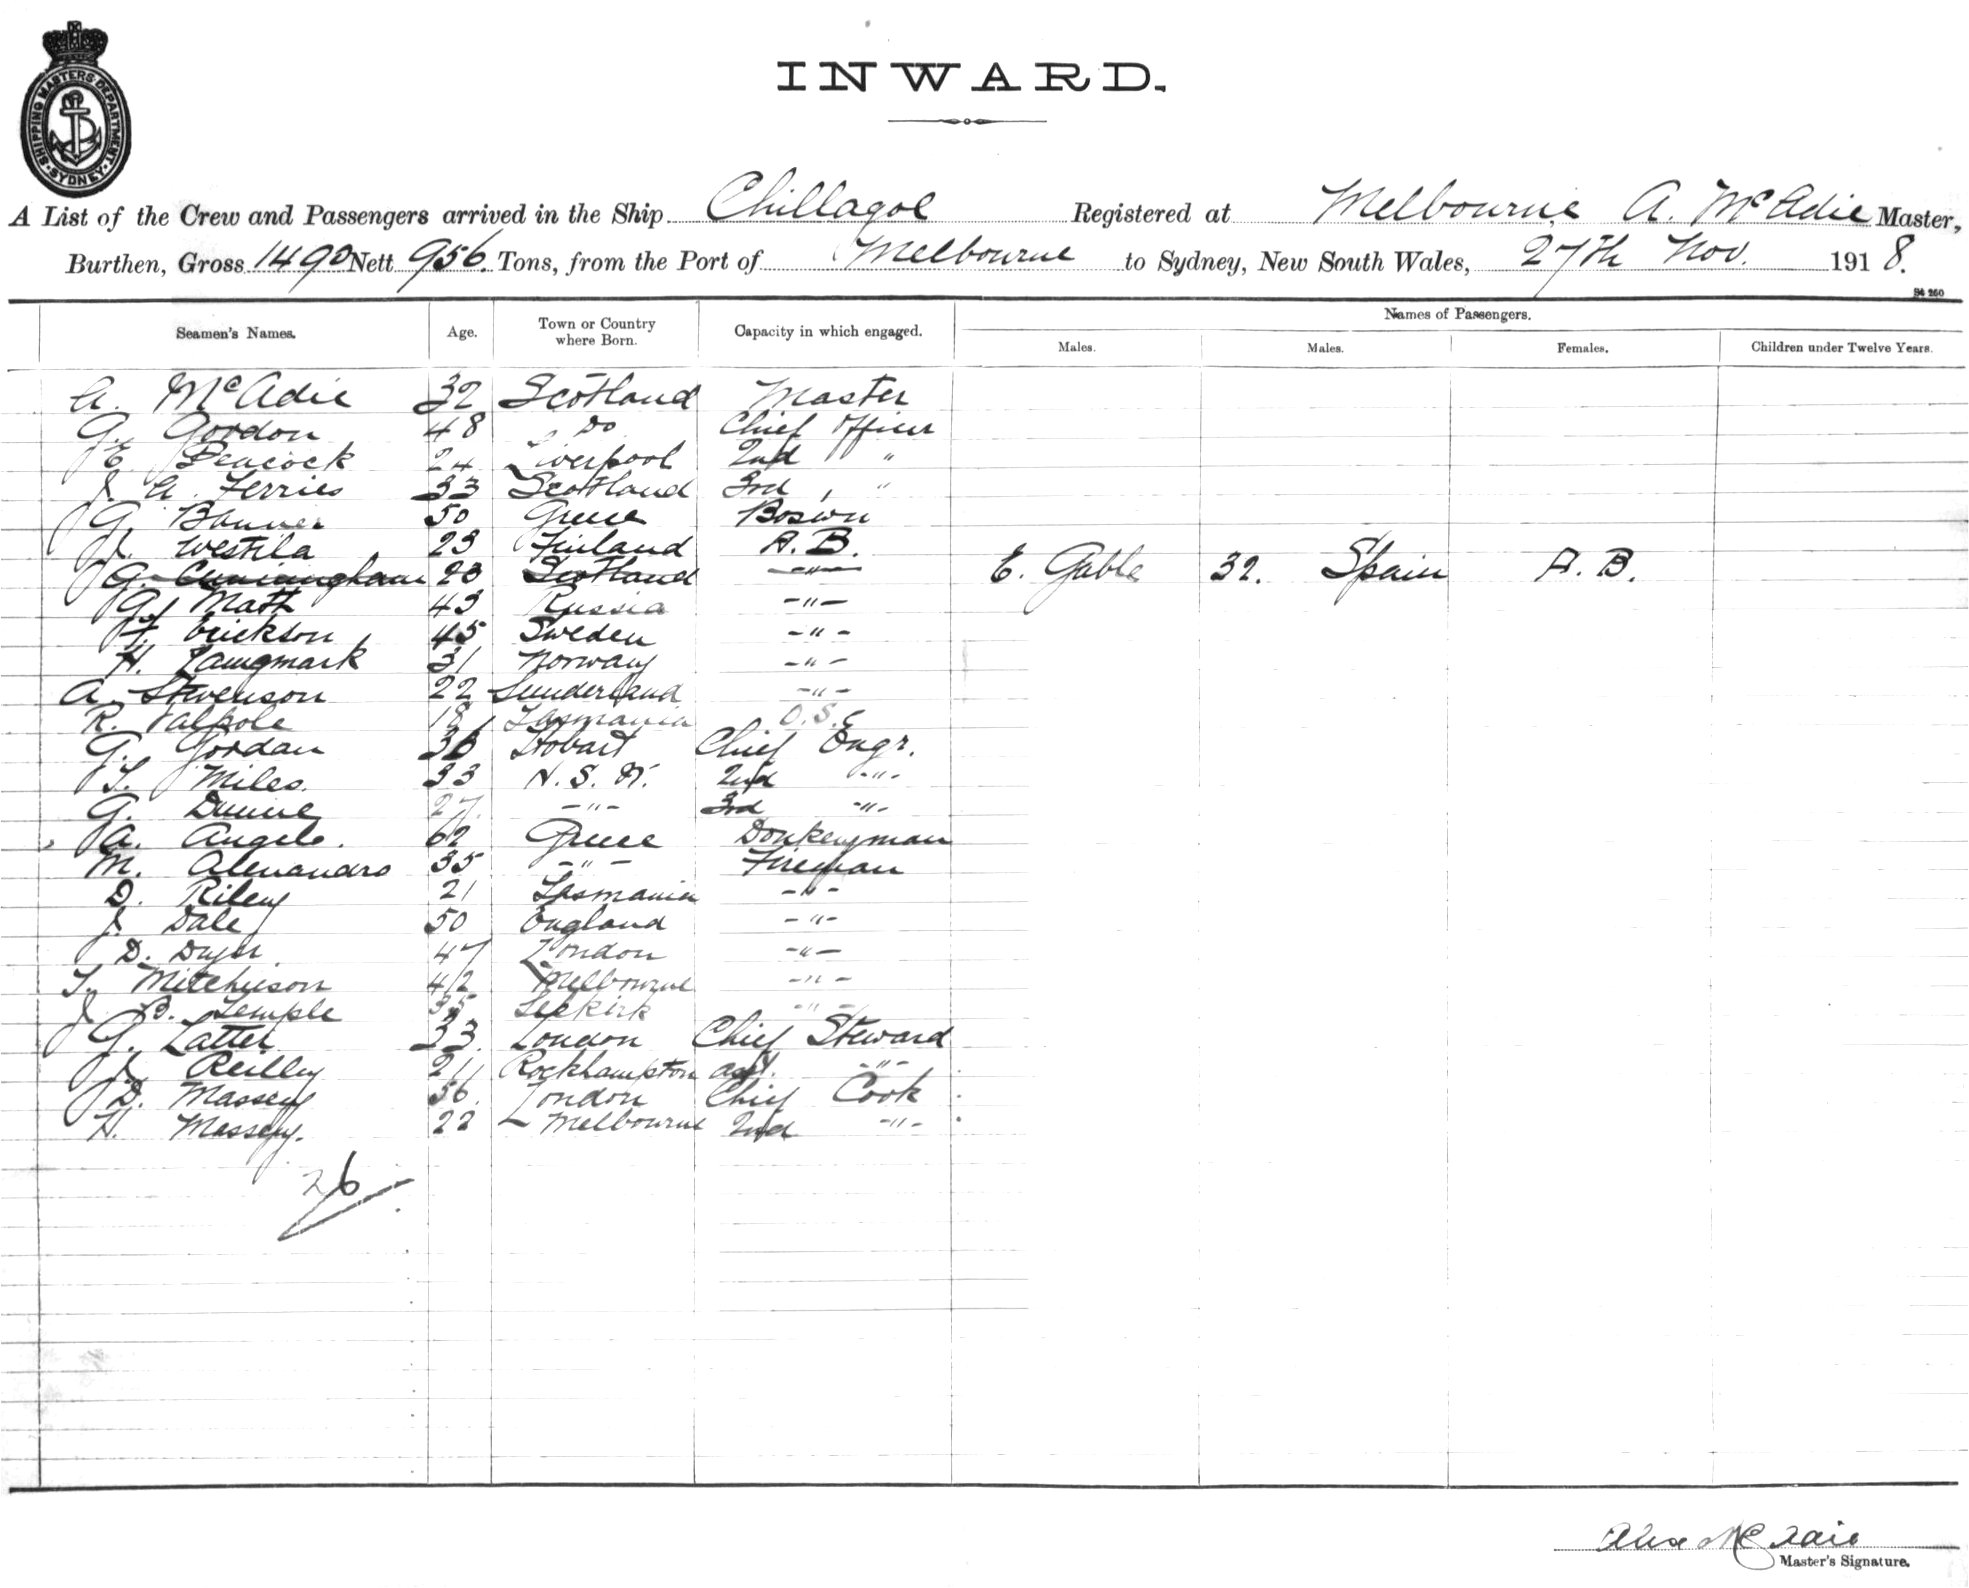 INWARD.
SHIPPING MASTERS DEPARTMENT
SYDNEY
A List of the Crew and Passengers arrived in the Ship Chillagoe Registered at Melbourne, A. McAdie Master,
Burthen, Gross 1490 Nett 956. Tons, from the Port of Melbourne to Sydney, New South Wales, 27th Nov. 1918.
S4 250
Seamen's Names. Age. Town or Country where Born. Capacity in which engaged. Names of Passengers.
Males. Males. Females. Children under Twelve Years.
A. McAdie 32 Scotland Master
G. Gordon 48 Do Chief Officer
E. Peacock 24 Liverpool 2nd "
J. A. Ferries 33 Scotland 3rd "
G. Banner 50 Greece Boswn
J. Westila 23 Finland A.B.
G. Cunningham 23 Scotland -"- E. Gable 32. Spain A.B.
G. Matt 43 Russia -"-
F. Erickson 45 Sweden -"-
H. Langmark 31 Norway -"-
A. Stevenson 22 Sunderland -"-
R. Valpole 18 Tasmania O.S.
G. Gordan 36 Hobart Chief Engr.
T. Miles. 33 N.S.W. 2nd -"-
G. Dunne 27 -"- 3rd -"-
A. Angelo. 62 Greece Donkeyman
M. Alexandro 35 -"- Fireman
D. Riley 21 Tasmania -"-
J. Dale 50 England -"-
D. Dyer 47 London -"-
T. Mitchison 42 Melbourne -"-
J. B. Temple 35 Selkirk -"-
G. Latter 33. London Chief Steward
J. Reilly 21 Rockhampton asst. -"-
D. Massey 56. London Chief Cook
H. Massey. 22 Melbourne 2nd -"-
26
Alex McAdie
Master's Signature.